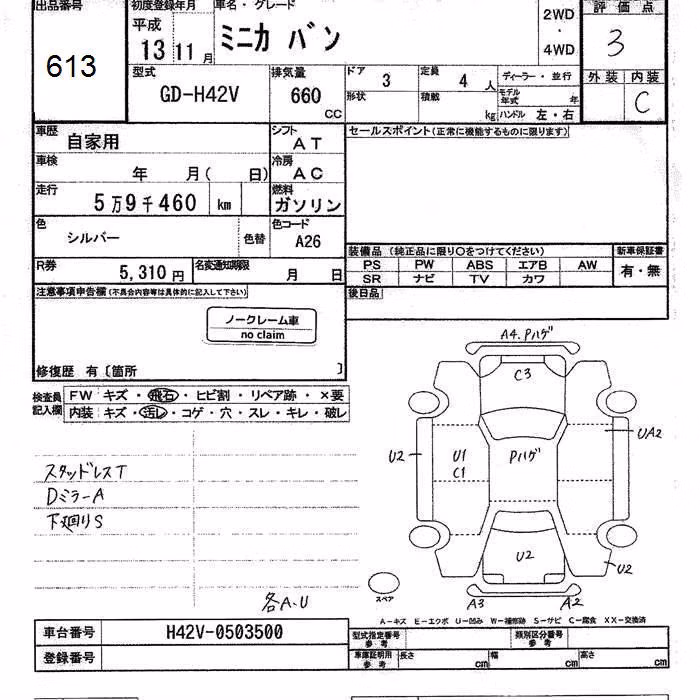 出品番号
613
初度登録年月
平成
13 11 月
車名・グレード
ミニカ バン
2WD
・
4WD
評価点
3
外装 内装
C
型式
GD-H42V
排気量
660
CC
ドア
3
定員
4 人
形状
積載
kg
ディーラー・並行
モデル年式 年
ハンドル 左・右
車歴
自家用
シフト
AT
車検
年 月( 日)
冷房
AC
走行
5万9千460 km
燃料
ガソリン
色
シルバー
色替
色コード
A26
R券
5,310 円
名変通知期限
月 日
セールスポイント(正常に機能するものに限ります)
装備品 (純正品に限り○をつけてください)
PS PW ABS エアB AW
SR ナビ TV カワ
新車保証書
有・無
後日品
注意事項申告欄(不具合内容等は具体的に記入して下さい)
ノークレーム車
no claim
修復歴 有〔箇所 〕
検査員記入欄
FW キズ・飛石・ヒビ割・リペア跡・×要
内装 キズ・汚レ・コゲ・穴・スレ・キレ・破レ
スタッドレスT
DミラーA
下廻りS
各A.U
A4.Pハゲ
C3
U2
U1
C1
Pハゲ
UA2
U2
U2
スペア
A3
A2
A-キズ E-エクボ U-凹み W-補修跡 S-サビ C-腐食 XX-交換済
車台番号
H42V-0503500
登録番号
型式指定番号
参考
類別区分番号
参考
車庫証明用
参考
長さ cm
幅 cm
高さ cm